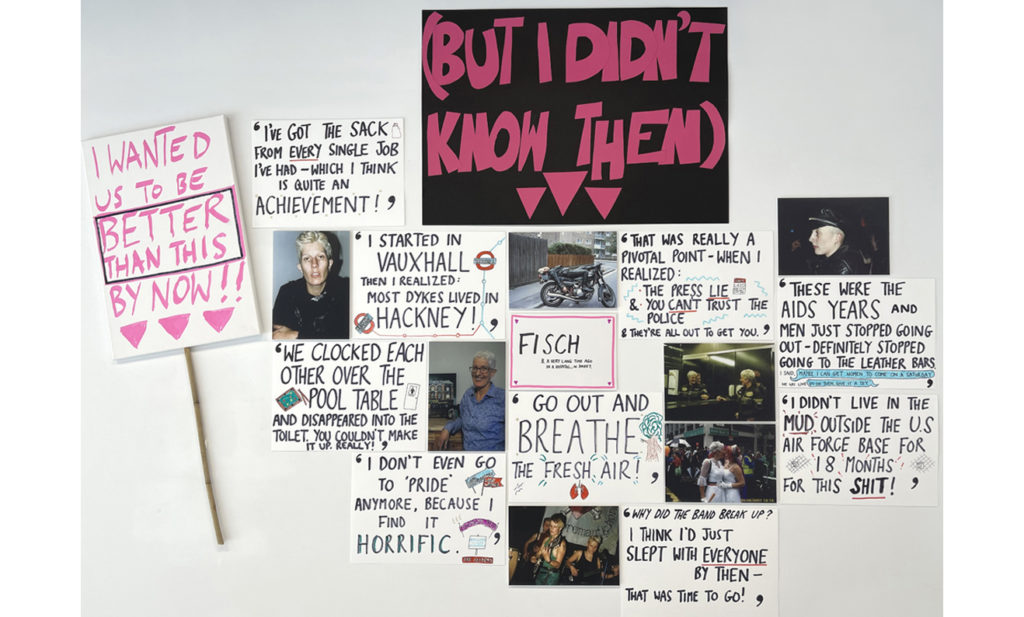 (BUT I DIDN'T
KNOW THEN)
I WANTED
US TO BE
BETTER
THAN THIS
BY NOW!!
‘I'VE GOT THE SACK
FROM EVERY SINGLE JOB
I'VE HAD – WHICH I THINK
IS QUITE AN
ACHIEVEMENT!’
‘I STARTED IN
VAUXHALL
THEN I REALIZED:
MOST DYKES LIVED IN
HACKNEY!’
‘THAT WAS REALLY A
PIVOTAL POINT – WHEN I
REALIZED:
· THE PRESS LIE
& · YOU CAN'T TRUST THE
POLICE
& THEY'RE ALL OUT TO GET YOU.’
‘THESE WERE THE
AIDS YEARS AND
MEN JUST STOPPED GOING
OUT – DEFINITELY STOPPED
GOING TO THE LEATHER BARS
I SAID, MAYBE I CAN GET WOMEN TO COME ON A SATURDAY
’
‘WE CLOCKED EACH
OTHER OVER THE
POOL TABLE
AND DISAPPEARED INTO THE
TOILET. YOU COULDN'T MAKE
IT UP. REALLY!’
FISCH
& A VERY LONG TIME AGO
IN A HOSPITAL, IN
‘GO OUT AND
BREATHE
THE FRESH AIR!’
‘I DIDN'T LIVE IN THE
MUD OUTSIDE THE U.S
AIR FORCE BASE FOR
18 MONTHS
FOR THIS SHIT!’
‘I DON'T EVEN GO
TO ‘PRIDE’
ANYMORE, BECAUSE I
FIND IT
HORRIFIC.’
‘WHY DID THE BAND BREAK UP?
I THINK I'D JUST
SLEPT WITH EVERYONE
BY THEN –
THAT WAS TIME TO GO!’